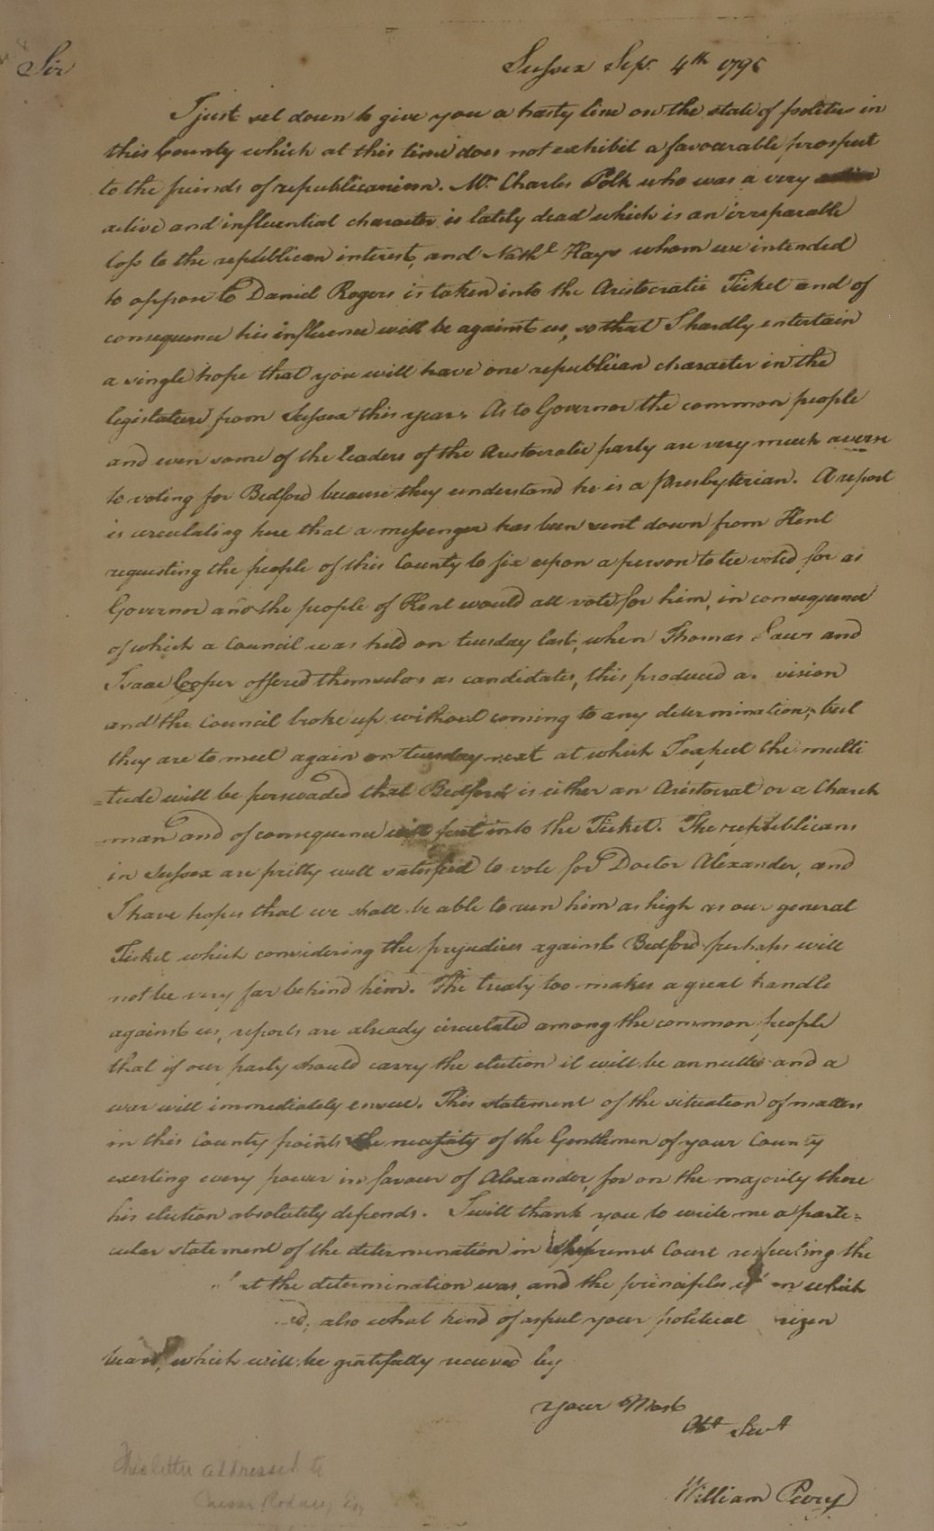 Sir
Sussex Sepr. 4th 179
I just set down to give you a hasty line on the state of politics in
this County which at this time does not exhibit a favourable prospect
to the friends of republicanism. Mr. Charles Polk who was a very
active and influential character is lately dead which is an irreparable
loss to the republican interest, and Nathl. Hays whom we intended
to oppose to Daniel Rogers is taken into the Aristocratic Ticket and of
consequence his influence will be against us, so that I hardly entertain
a single hope that you will have one republican character in the
legislature from Sussex this year. As to Governor the common people
and even some of the leaders of the Aristocratic party are very much averse
to voting for Bedford because they understand he is a Presbyterian. A report
is circulating here that a messenger has been sent down from Kent
requesting the people of this County to fix upon a person to be voted for as
Governor and the people of Kent would all vote for him, in consequence
of which a Council was held on tuesday last, when Thomas Laws and
Isaac Cooper offered themselves as candidates, this produced a vision
and the Council broke up without coming to any determination; but
they are to meet again on tuesday next at which I expect the multi
=tude will be perswaded that Bedford is either an Aristocrat or a Church
=man and of consequence will put into the Ticket. The republicans
in Sussex are pritty well satisfied to vote for Doctor Alexander, and
I have hopes that we shall be able to run him as high as our general
Ticket which considering the prejudices against Bedford perhaps will
not be very far behind him. The treaty too makes a great handle
against us, reports are already circulated among the common people
that if our party should carry the election it will be annulled and a
war will immediately ensue. This statement of the situation of matters
in this County points the necessity of the Gentlemen of your County
exerting every power in favour of Alexander, for on the majority there
his election absolutely depends. I will thank you to write me a parti=
cular statement of the determination in Supreme Court respecting the
at the determination was, and the principles on which
ed, also what kind of aspect your political rizon
bears, which will be gratefully received by
your Most
Obt. Servt.
William Peery
This letter addressed to
Caesar Rodney, Esq.